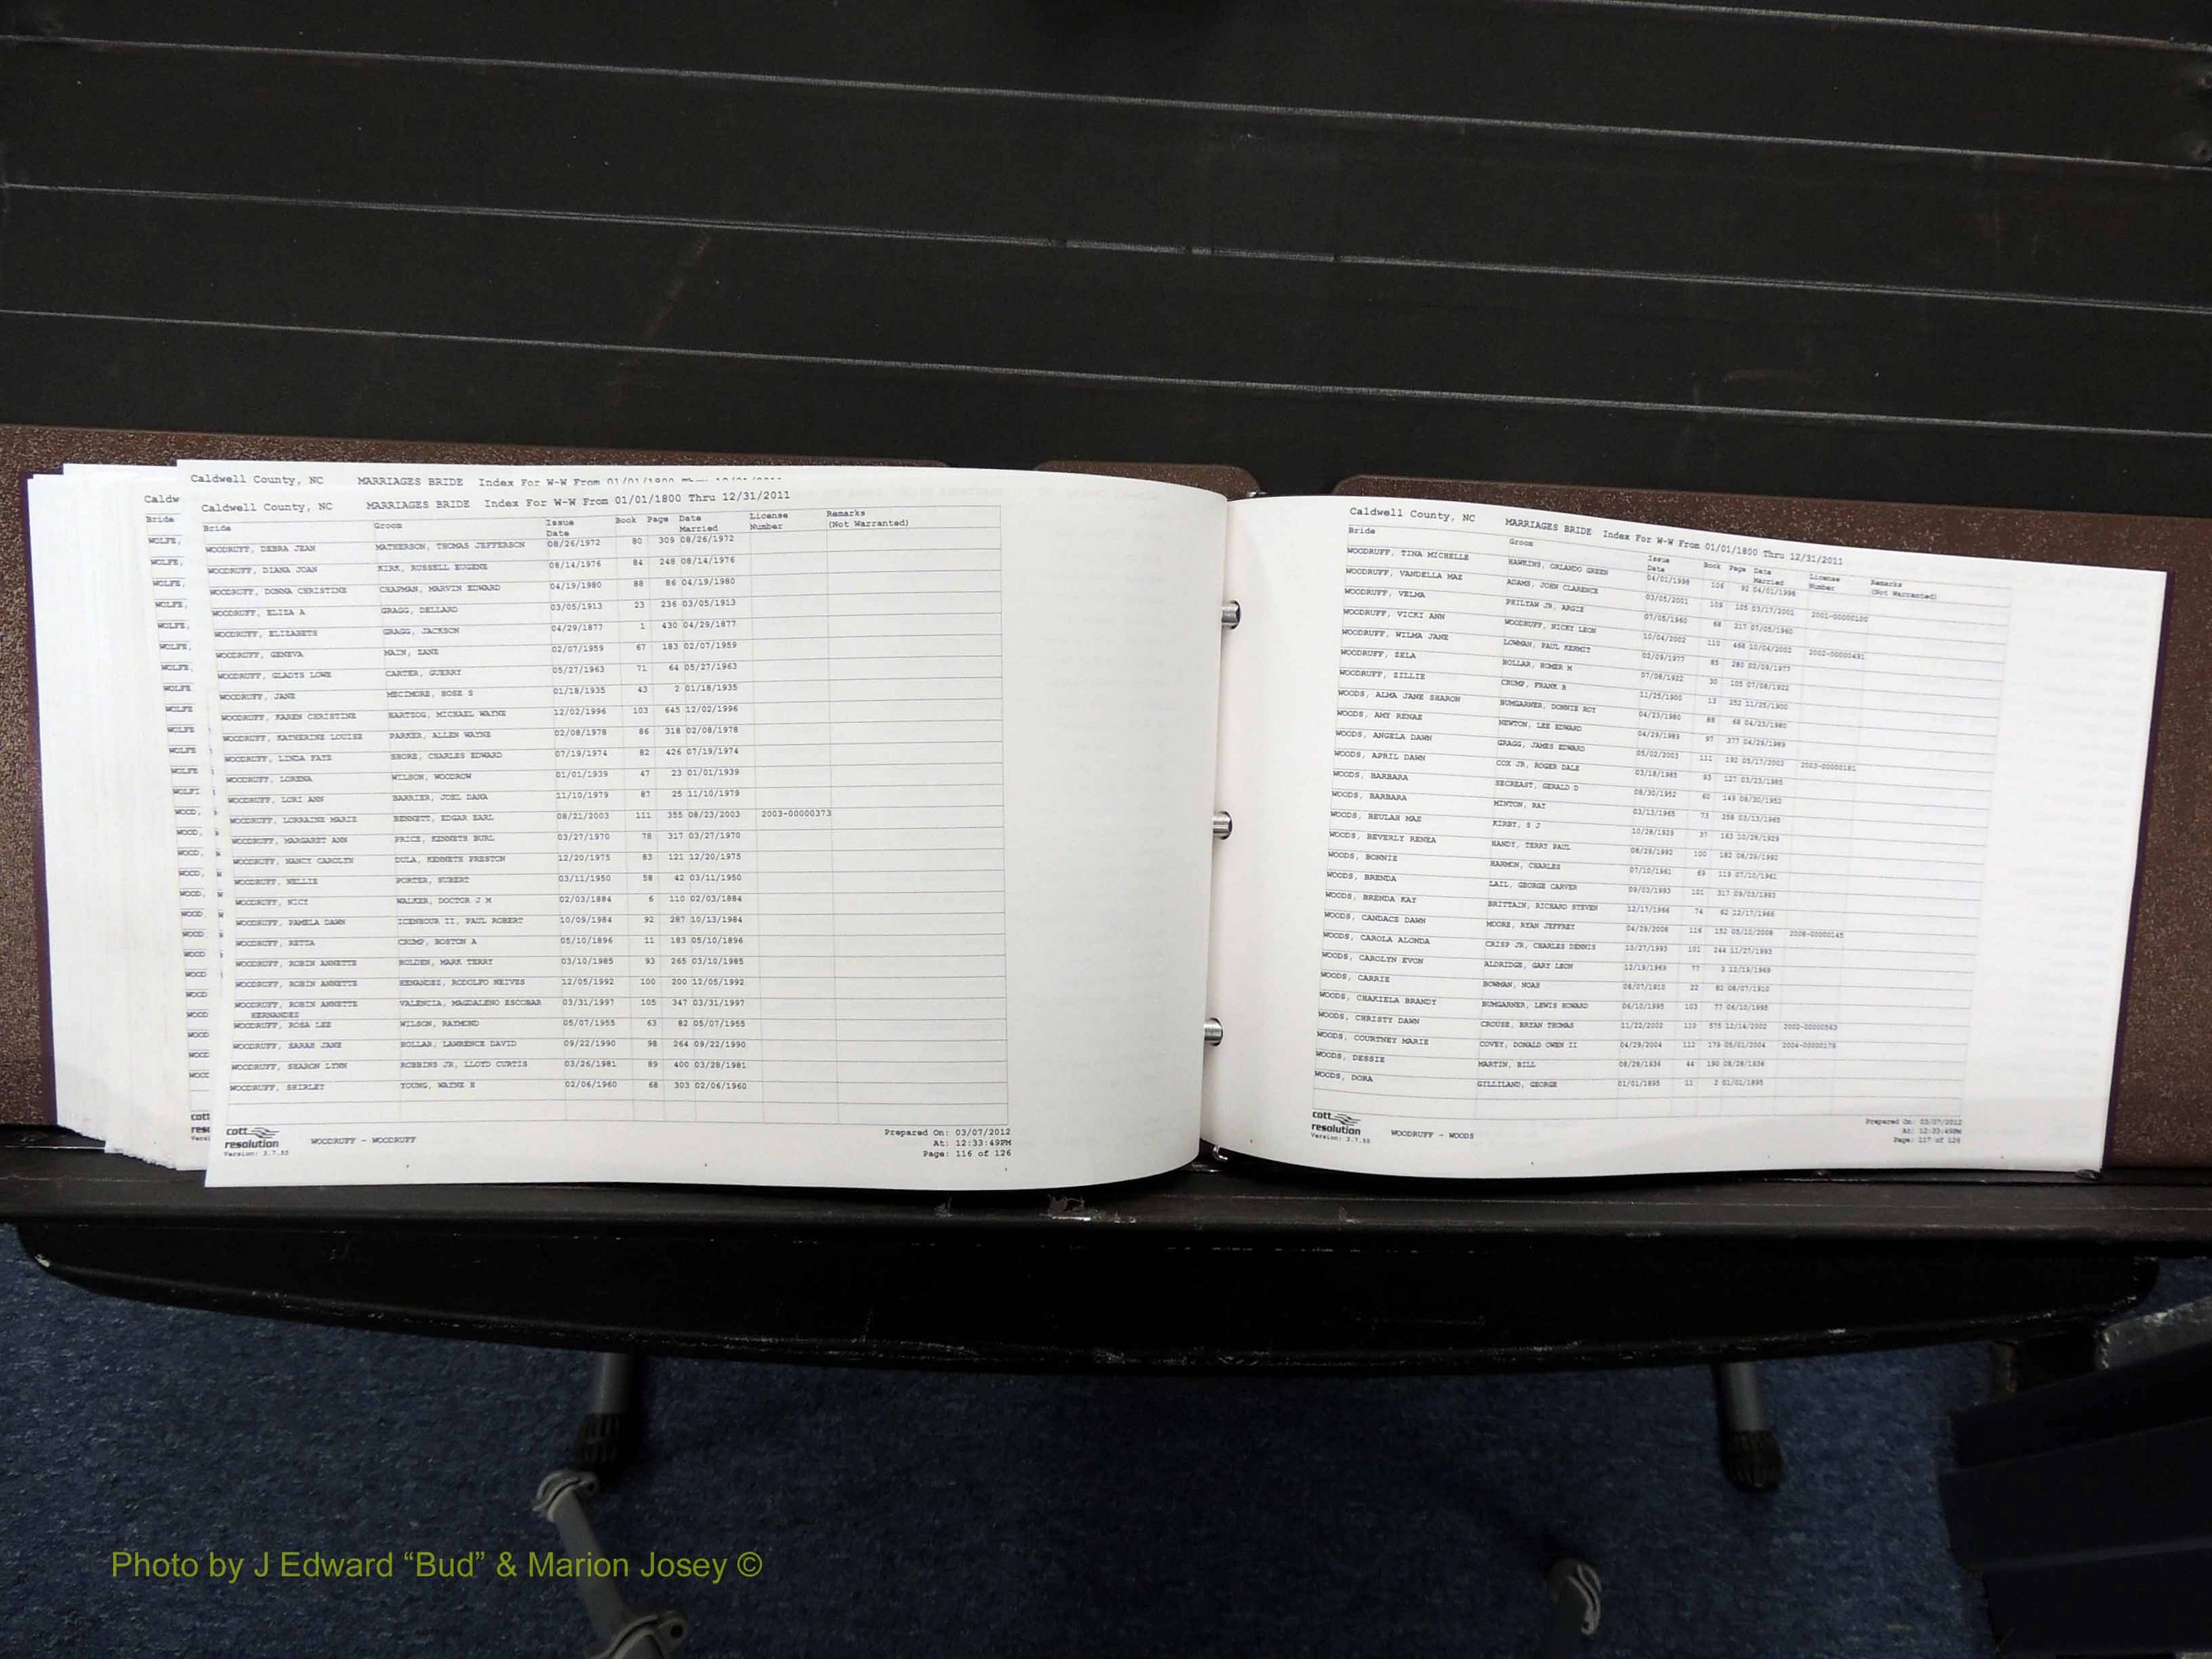 Caldwell County, NC MARRIAGES BRIDE Index For W-W From 01/01/1800
Caldw
Bride
WOLFE,
WOLFE,
WOLFE,
WOLFE,
WOLFE,
WOLFE,
WOLFE,
WOLFE
WOLFE
WOLFE
WOLFE
WOLFE
WOLFE
WOOD,
WOOD,
WOOD,
WOOD,
WOOD,
WOOD
WOOD
WOOD
WOOD
WOOD
WOOD
WOOD
WOOD
Caldwell County, NC MARRIAGES BRIDE Index For W-W From 01/01/1800 Thru 12/31/2011
Bride Groom Issue Date Book Page Date Married License Number Remarks (Not Warranted)
WOODRUFF, DEBRA JEAN MATHERSON, THOMAS JEFFERSON 08/26/1972 80 309 08/26/1972
WOODRUFF, DIANA JOAN KIRK, RUSSELL EUGENE 08/14/1976 84 248 08/14/1976
WOODRUFF, DONNA CHRISTINE CHAPMAN, MARVIN EDWARD 04/19/1980 88 86 04/19/1980
WOODRUFF, ELIZA A GRAGG, DELLARD 03/05/1913 23 236 03/05/1913
WOODRUFF, ELIZABETH GRAGG, JACKSON 04/29/1877 1 430 04/29/1877
WOODRUFF, GENEVA MAIN, ZANE 02/07/1959 67 183 02/07/1959
WOODRUFF, GLADYS LOWE CARTER, GUERRY 05/27/1963 71 64 05/27/1963
WOODRUFF, JANE MECIMORE, ROSE S 01/18/1935 43 2 01/18/1935
WOODRUFF, KAREN CHRISTINE HARTZOG, MICHAEL WAYNE 12/02/1996 103 645 12/02/1996
WOODRUFF, KATHERINE LOUISE PARKER, ALLEN WAYNE 02/08/1978 86 318 02/08/1978
WOODRUFF, LINDA FAYE SHORE, CHARLES EDWARD 07/19/1974 82 426 07/19/1974
WOODRUFF, LORENA WILSON, WOODROW 01/01/1939 47 23 01/01/1939
WOODRUFF, LORI ANN BARRIER, JOEL DANA 11/10/1979 87 25 11/10/1979
WOODRUFF, LORRAINE MARIE BENNETT, EDGAR EARL 08/21/2003 111 355 08/23/2003 2003-00000373
WOODRUFF, MARGARET ANN PRICE, KENNETH BURL 03/27/1970 78 317 03/27/1970
WOODRUFF, NANCY CAROLYN DULA, KENNETH PRESTON 12/20/1975 83 121 12/20/1975
WOODRUFF, NELLIE PORTER, HUBERT 03/11/1950 58 42 03/11/1950
WOODRUFF, NICY WALKER, DOCTOR J M 02/03/1884 6 110 02/03/1884
WOODRUFF, PAMELA DAWN ICENHOUR II, PAUL ROBERT 10/09/1984 92 287 10/13/1984
WOODRUFF, RETTA CRUMP, BOSTON A 05/10/1896 11 183 05/10/1896
WOODRUFF, ROBIN ANNETTE BOLDEN, MARK TERRY 03/10/1985 93 265 03/10/1985
WOODRUFF, ROBIN ANNETTE HENANDEZ, RODOLFO NEIVES 12/05/1992 100 200 12/05/1992
WOODRUFF, ROBIN ANNETTE VALENCIA, MAGDALENO ESCOBAR 03/31/1997 105 347 03/31/1997
HERNANDEZ
WOODRUFF, ROSA LEE WILSON, RAYMOND 05/07/1955 63 82 05/07/1955
WOODRUFF, SARAH JANE HOLLAR, LAWRENCE DAVID 09/22/1990 98 264 09/22/1990
WOODRUFF, SHARON LYNN ROBBINS JR, LLOYD CURTIS 03/26/1981 89 400 03/28/1981
WOODRUFF, SHIRLEY YOUNG, WAYNE B 02/06/1960 68 303 02/06/1960
cott resolution
Version: 3.7.55
WOODRUFF - WOODRUFF
Prepared On: 03/07/2012
At: 12:33:49PM
Page: 116 of 126
Caldwell County, NC MARRIAGES BRIDE Index For W-W From 01/01/1800 Thru 12/31/2011
Bride Groom Issue Date Book Page Date Married License Number Remarks (Not Warranted)
WOODRUFF, TINA MICHELLE HAWKINS, ORLANDO GREEN 04/01/1998 106 91 04/01/1998
WOODRUFF, VANDELLA MAE ADAMS, JOHN CLARENCE 03/05/2001 109 105 03/17/2001 2001-00000100
WOODRUFF, VELMA PHILYAW JR, ARGIE 07/05/1960 68 217 07/05/1960
WOODRUFF, VICKI ANN WOODRUFF, NICKY LEON 10/04/2002 110 468 10/04/2002 2002-00000491
WOODRUFF, WILMA JANE LOWMAN, PAUL KERMIT 02/09/1977 85 280 02/09/1977
WOODRUFF, ZELA HOLLAR, HOMER M 07/08/1922 30 105 07/08/1922
WOODRUFF, ZILLIE CRUMP, FRANK R 11/25/1900 13 252 11/25/1900
WOODS, ALMA JANE SHARON BUMGARNER, DONNIE ROY 04/23/1980 88 68 04/23/1980
WOODS, AMY RENAE NEWTON, LEE EDWARD 04/29/1989 97 377 04/29/1989
WOODS, ANGELA DAWN GRAGG, JAMES EDWARD 05/02/2003 111 192 05/17/2003 2003-00000181
WOODS, APRIL DAWN COX JR, ROGER DALE 03/18/1985 93 127 03/23/1985
WOODS, BARBARA SECREAST, GERALD D 08/30/1952 60 149 08/30/1952
WOODS, BARBARA MINTON, RAY 03/13/1965 73 258 03/13/1965
WOODS, BEULAH MAE KIRBY, S J 10/28/1929 37 163 10/28/1929
WOODS, BEVERLY RENEA HANDY, TERRY PAUL 08/29/1992 100 182 08/29/1992
WOODS, BONNIE HARMON, CHARLES 07/10/1961 69 119 07/10/1961
WOODS, BRENDA LAIL, GEORGE CARVER 09/03/1993 101 317 09/03/1993
WOODS, BRENDA KAY BRITTAIN, RICHARD STEVEN 12/17/1966 74 62 12/17/1966
WOODS, CANDACE DAWN MOORE, RYAN JEFFREY 04/29/2008 116 152 05/10/2008 2008-00000145
WOODS, CAROLA ALONDA CRISP JR, CHARLES DENNIS 10/27/1993 101 244 11/27/1993
WOODS, CAROLYN EVON ALDRIDGE, GARY LEON 12/19/1969 77 3 12/19/1969
WOODS, CARRIE BOWMAN, NOAH 08/07/1910 22 82 08/07/1910
WOODS, CHAKIELA BRANDY BUMGARNER, LEWIS HOWARD 06/10/1995 103 77 06/10/1995
WOODS, CHRISTY DAWN CROUSE, BRYAN THOMAS 11/22/2002 110 575 12/14/2002 2002-00000563
WOODS, COURTNEY MARIE COVEY, DONALD OWEN II 04/29/2004 112 178 05/01/2004 2004-00000178
WOODS, DESSIE MARTIN, BILL 08/28/1936 44 190 08/28/1936
WOODS, DORA GILLILAND, GEORGE 01/01/1895 11 2 01/01/1895
cott resolution
Version: 3.7.55
WOODRUFF - WOODS
Prepared On: 03/07/2012
At: 12:33:49PM
Page: 117 of 126
Photo by J Edward “Bud” & Marion Josey ©